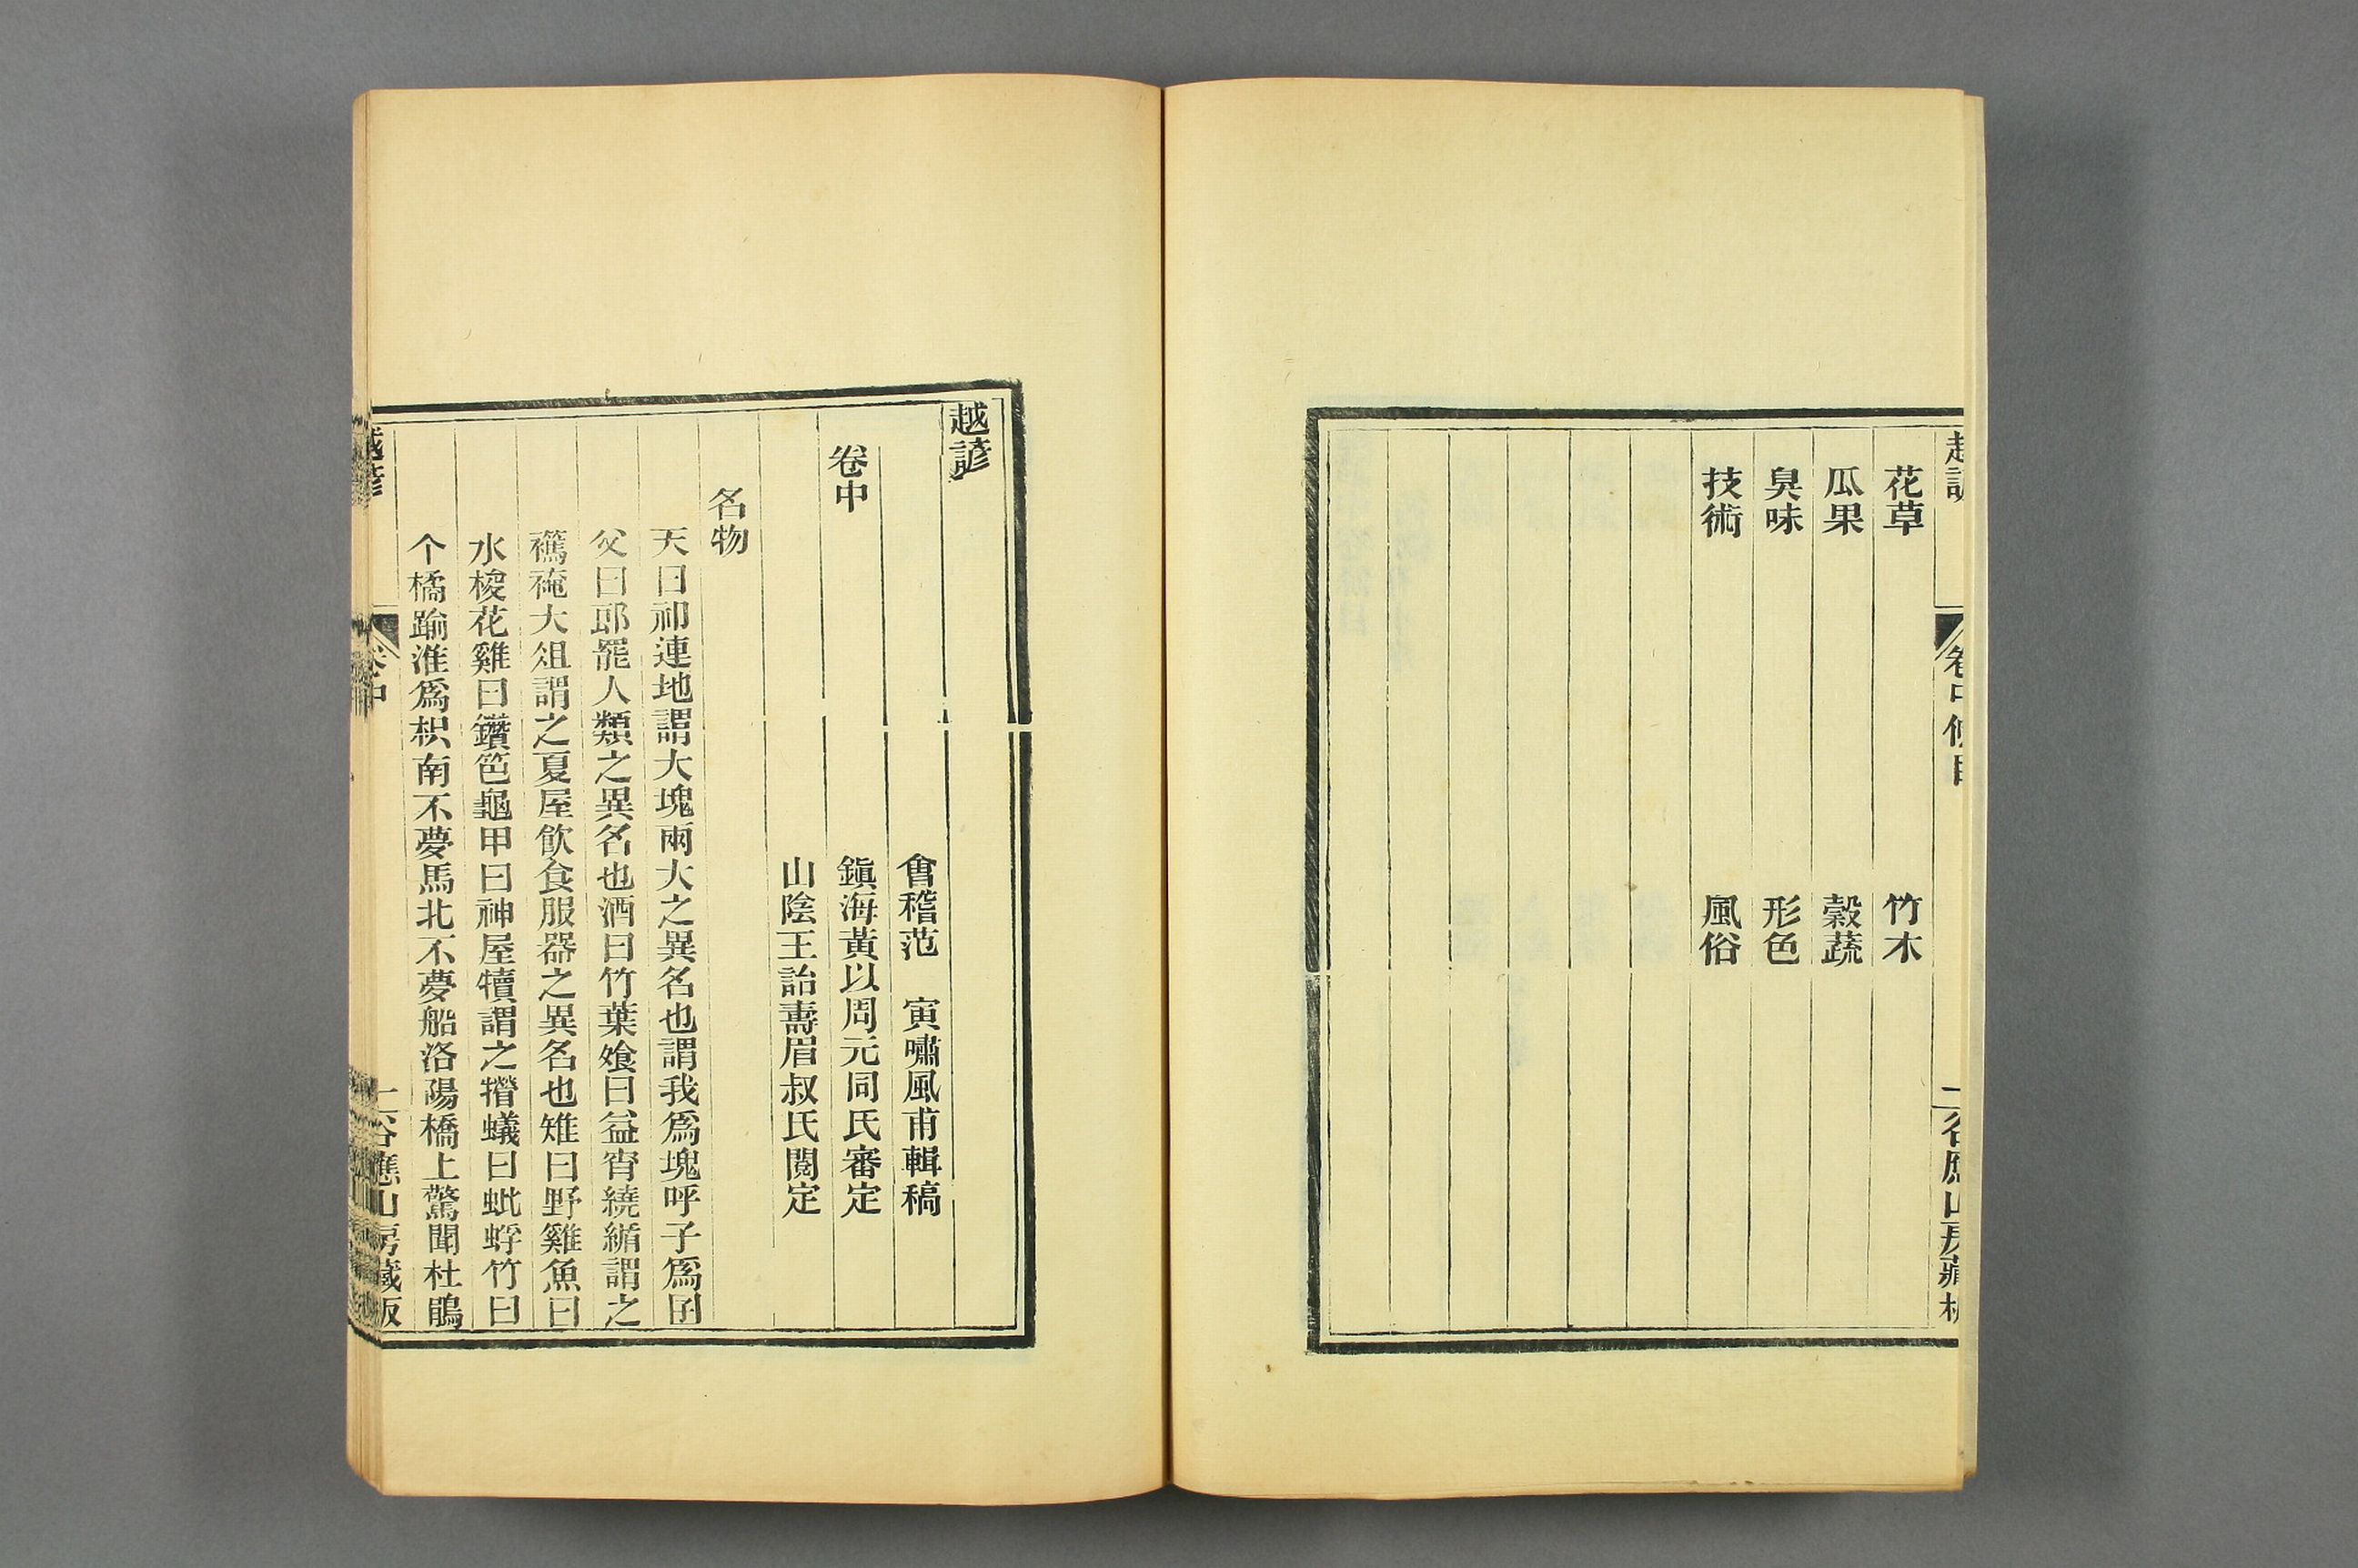 花草　竹木
瓜果　穀蔬
臭味　形色
技術　風俗
越諺
會稽范　寅嘯風甫輯稿
卷中　鎮海黃以周元同氏審定
山陰王詒壽眉叔氏閱定
名物
天曰祁連地謂大塊兩大之異名也謂我爲塊呼子爲囝
父曰郎罷人類之異名也酒曰竹葉飧曰益宵繞緧謂之
䙡裺大俎謂之夏屋飲食服器之異名也雉曰野雞魚曰
水梭花雞曰鑽笆龜甲曰神屋犢謂之㹊蟻曰蚍蜉竹曰
个橘踰淮爲枳南不夢馬北不夢船洛陽橋上驚聞杜鵑
越諺　卷中　一　谷應山房藏板